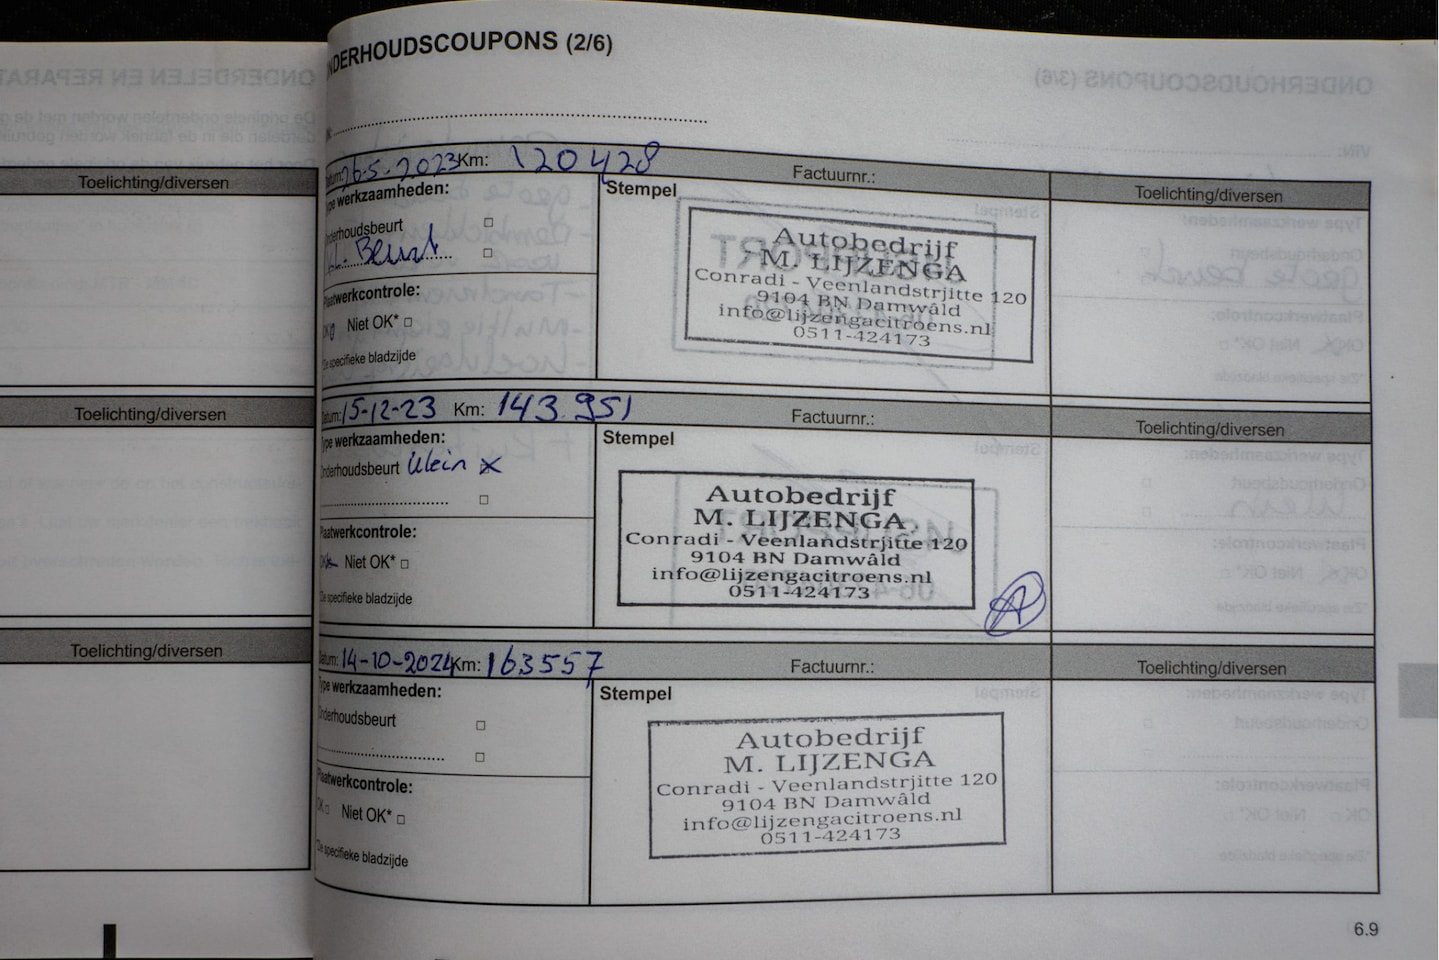 ONDERHOUDSCOUPONS (2/6)
Toelichting/diversen
Toelichting/diversen
Toelichting/diversen
Datum: 26-5-2023 Km: 120428 Factuurnr.: Toelichting/diversen
Type werkzaamheden:
Stempel
Onderhoudsbeurt
Beurt
Plaatwerkcontrole:
OK Niet OK*
*Zie specifieke bladzijde
Autobedrijf
M. LIJZENGA
Conradi - Veenlandstrjitte 120
9104 BN Damwâld
info@lijzengacitroens.nl
0511-424173
Datum: 15-12-23 Km: 143.951 Factuurnr.: Toelichting/diversen
Type werkzaamheden:
Stempel
Onderhoudsbeurt klein x
Plaatwerkcontrole:
OK Niet OK*
*Zie specifieke bladzijde
Autobedrijf
M. LIJZENGA
Conradi - Veenlandstrjitte 120
9104 BN Damwâld
info@lijzengacitroens.nl
0511-424173
Datum: 14-10-2024 Km: 163557 Factuurnr.: Toelichting/diversen
Type werkzaamheden:
Stempel
Onderhoudsbeurt
Plaatwerkcontrole:
OK Niet OK*
*Zie specifieke bladzijde
Autobedrijf
M. LIJZENGA
Conradi - Veenlandstrjitte 120
9104 BN Damwâld
info@lijzengacitroens.nl
0511-424173
6.9